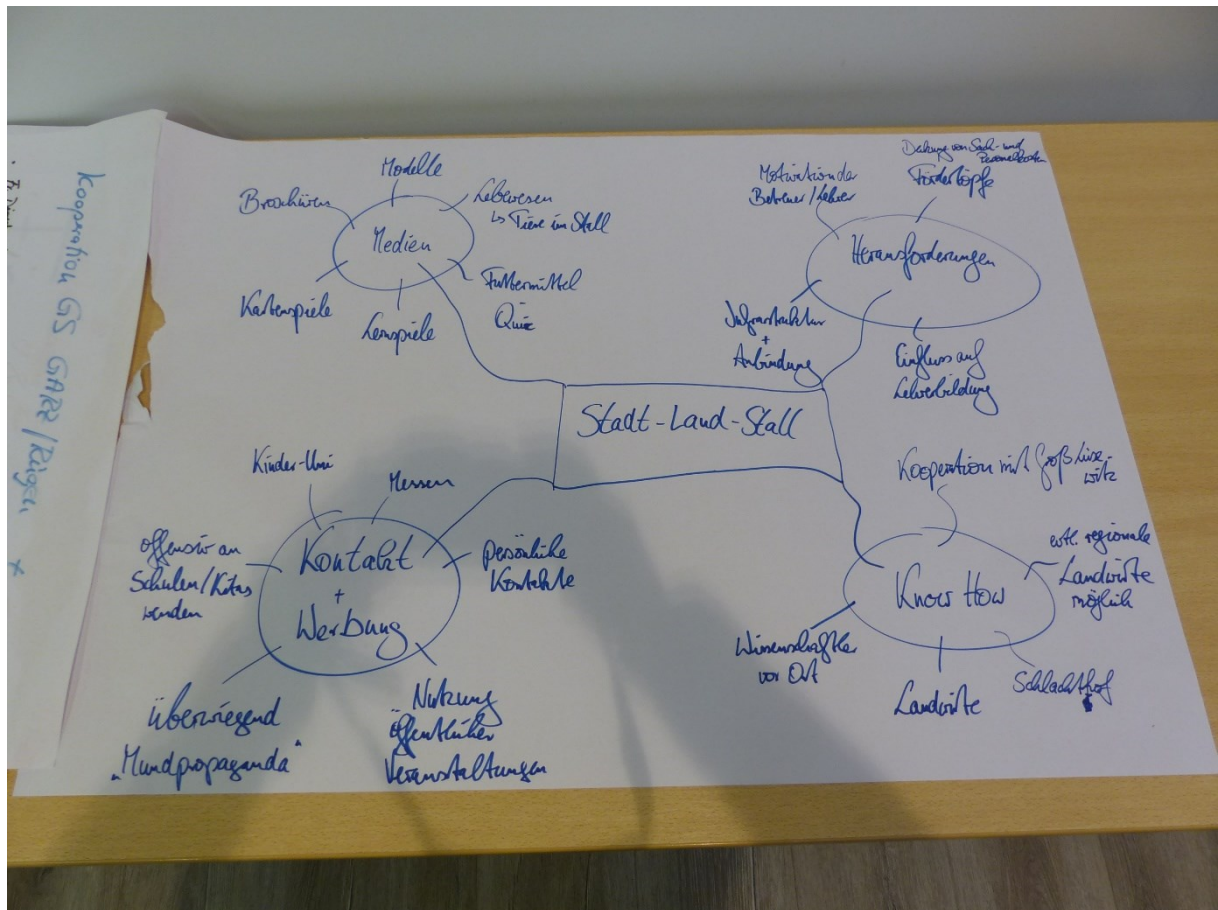 Kooperation GS GARZ/Rügen
Stadt-Land-Stall
Medien
Broschüren
Modelle
Lebewesen
↳ Tiere im Stall
Futtermittel
Quiz
Lernspiele
Kartenspiele
Herausforderungen
Motivation der
Betreuer/Lehrer
Deckung von Sach- und
Personalkosten
Fördertöpfe
Infrastruktur
+
Anbindung
Einfluss auf
Lehrerbildung
Kontakt
+
Werbung
Kinder-Uni
Messen
persönliche
Kontakte
offensiv an
Schulen/Kitas
wenden
überwiegend
"Mundpropaganda"
Nutzung
öffentlicher
Veranstaltungen
Know How
Kooperation mit Groß Lüse-
witz
evtl. regionale
Landwirte
möglich
Schlachthof
Landwirte
Wissenschaftler
vor Ort